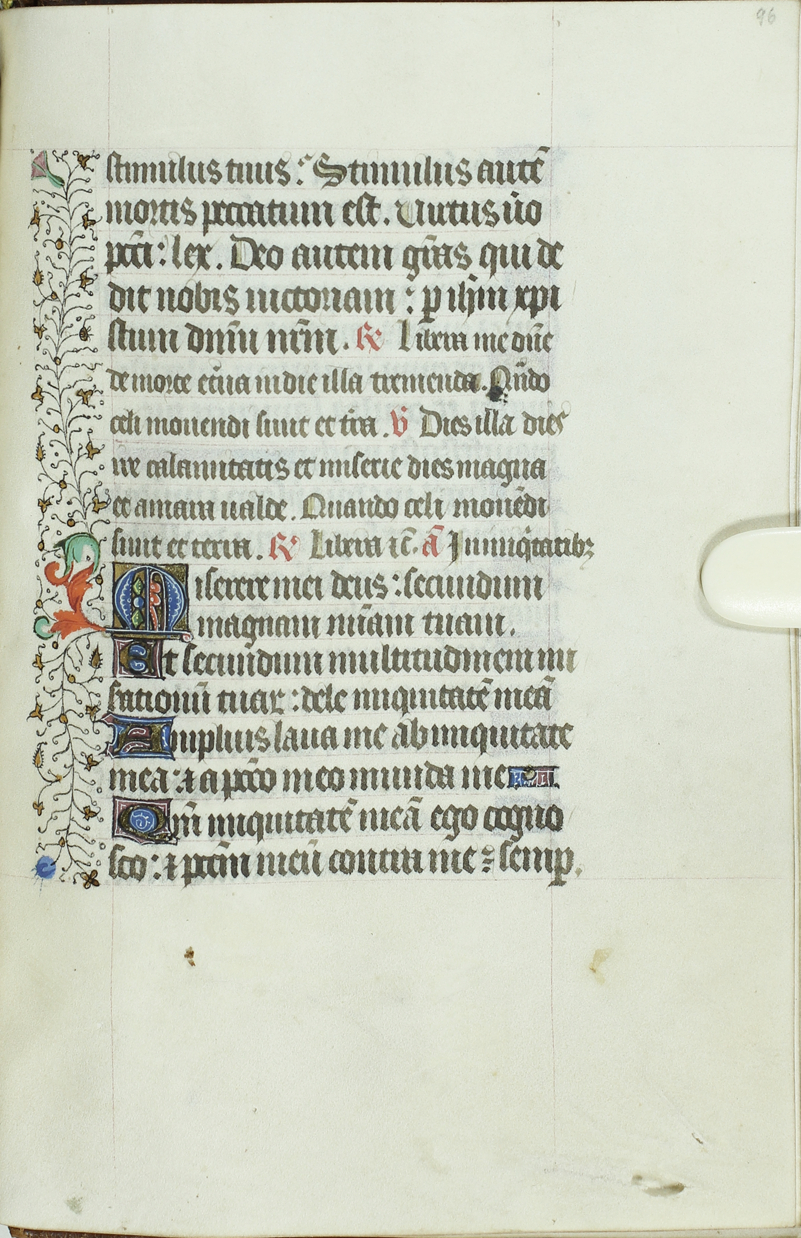 96
stimulus tuus: Stimulus autē
mortis peccatum est. Uirtus u̅o
pcc̄i: lex. Deo autem gr̄as qui de
dit nobis uictoriam: ꝑ ihm̄ xpi
stum dnm̄ nrm̄. ℟ Libera me dn̄e
de morte etn̄a in die illa tremenda. Qn̄do
celi mouendi sunt et tr̄a. ℣ Dies illa dies
ire calamitatis et miserie dies magna
et amara ualde. Quando celi mouēdi
sunt et terra. ℟ Libera ic̄. a̅ In iniq̄tatibꝫ
Miserere mei deus: secundum
magnam mīam tuam.
Et secundum multitudinem mi
sationū tuaꝝ: dele iniquitatē meā
Amplius laua me ab iniquitate
mea: ⁊ a pcc̄o meo munda me
Qm̄ iniquitatē meā ego cogno
sco: ⁊ pccm̄ meū contra me ē semꝑ.